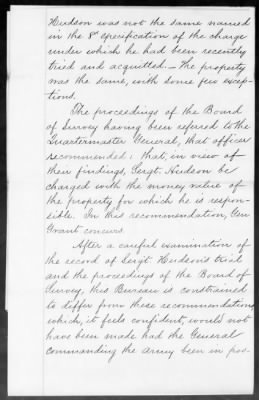 Hudson was not the same named
in the 8th specification of the charge
under which he had been recently
tried and acquitted. – The property
was the same, with some few excep-
tions.
The proceedings of the Board
of Survey having been referred to the
Quartermaster General, that officer
recommended: that, in view of
their findings, Sergt. Hudson be
charged with the money value of
the property for which he is respon-
sible. In this recommendation, Gen
Grant concurs.
After a careful examination of
the record of Sergt Hudson's trial
and the proceedings of the Board of
Survey, this Bureau is constrained
to differ from these recommendations
which, it feels confident, would not
have been made had the General
commanding the Army been in pos-